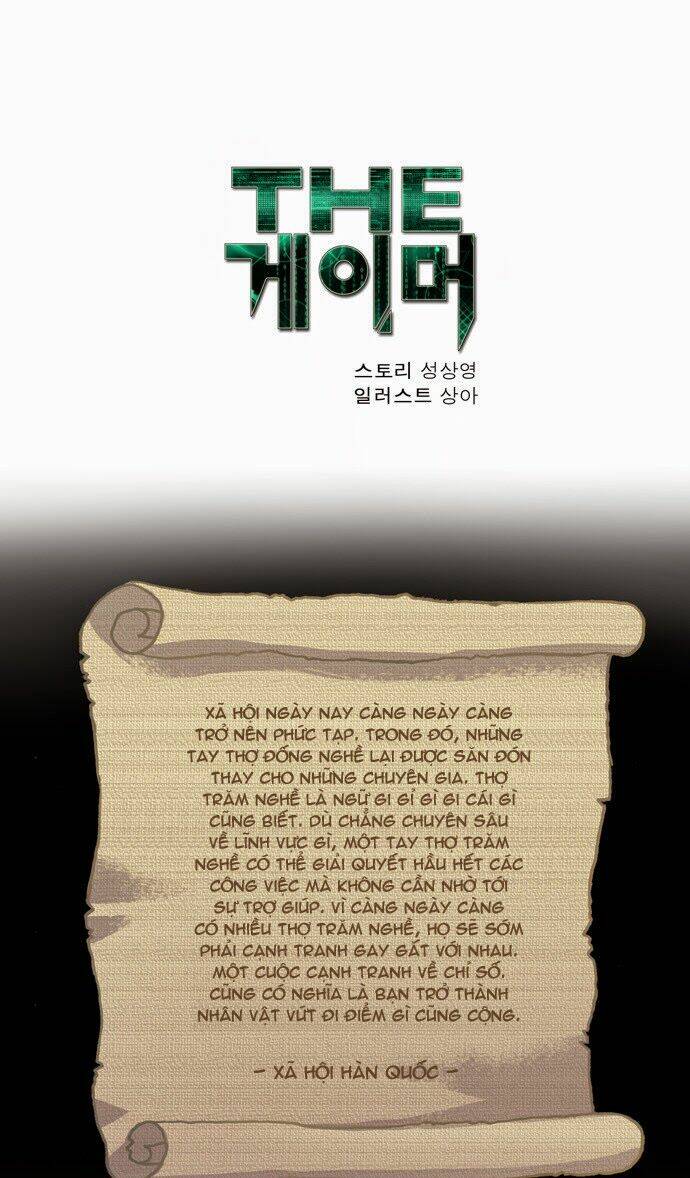 THE
게이머
스토리 성상영
일러스트 상아
XÃ HỘI NGÀY NAY CÀNG NGÀY CÀNG
TRỞ NÊN PHỨC TẠP. TRONG ĐÓ, NHỮNG
TAY THỢ ĐỐNG NGHỀ LẠI ĐƯỢC SĂN ĐÓN
THAY CHO NHỮNG CHUYÊN GIA. THỢ
TRĂM NGHỀ LÀ NGỮ GI GỈ GÌ GI CÁI GÌ
CŨNG BIẾT. DÙ CHẲNG CHUYÊN SÂU
VỀ LĨNH VỰC GÌ, MỘT TAY THỢ TRĂM
NGHỀ CÓ THỂ GIẢI QUYẾT HẦU HẾT CÁC
CÔNG VIỆC MÀ KHÔNG CẦN NHỜ TỚI
SỰ TRỢ GIÚP. VÌ CÀNG NGÀY CÀNG
CÓ NHIỀU THỢ TRĂM NGHỀ, HỌ SẼ SỚM
PHẢI CẠNH TRANH GAY GẮT VỚI NHAU.
MỘT CUỘC CẠNH TRANH VỀ CHỈ SỐ.
CŨNG CÓ NGHĨA LÀ BẠN TRỞ THÀNH
NHÂN VẬT VỨT ĐI ĐIỂM GÌ CŨNG CỘNG.
- XÃ HỘI HÀN QUỐC -